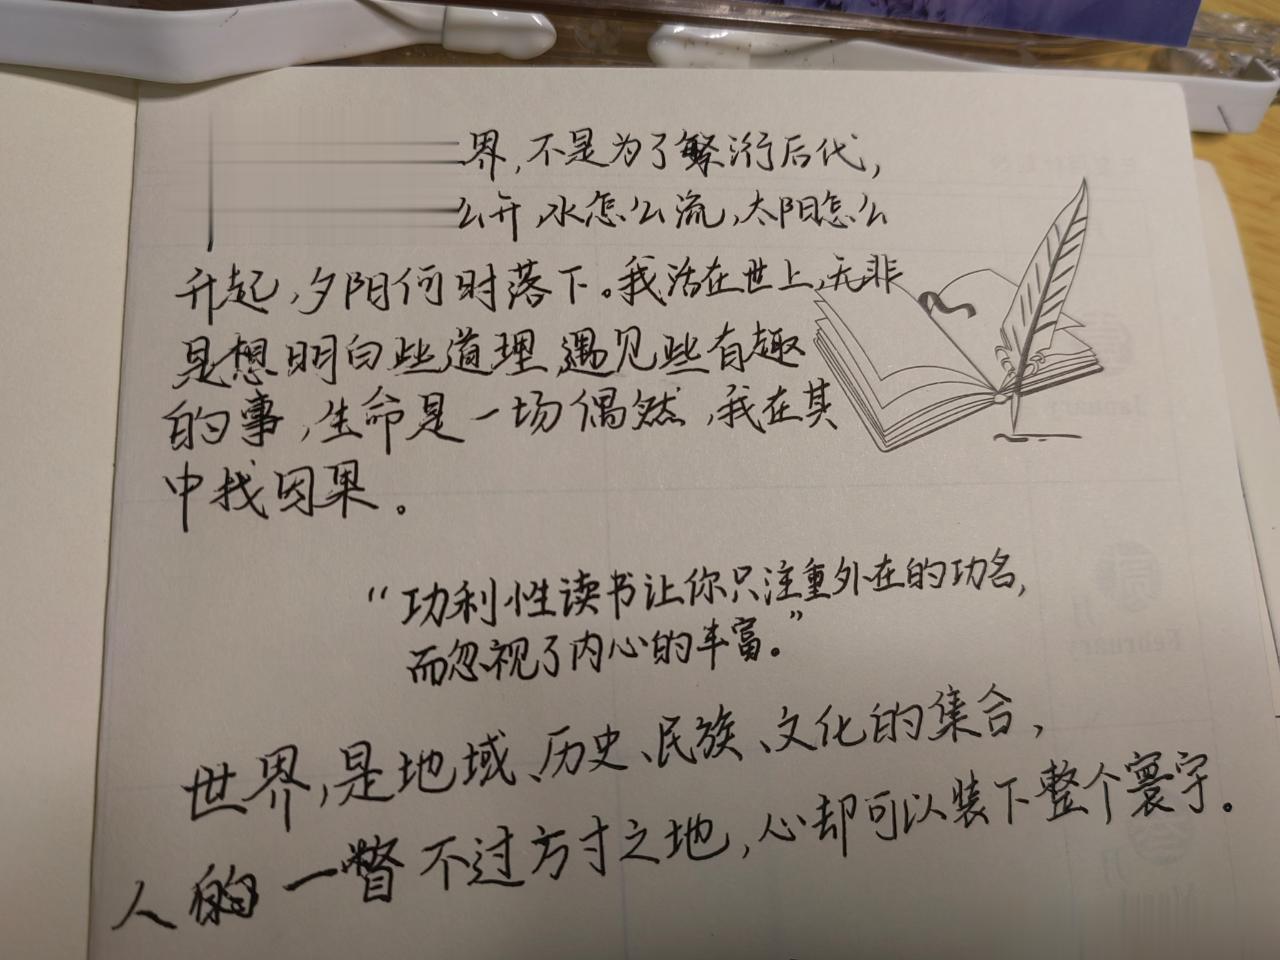 界，不是为了繁衍后代，
么开，水怎么流，太阳怎么
升起，夕阳何时落下。我活在世上，无非
是想明白些道理，遇见些有趣
的事，生命是一场偶然，我在其
中找因果。
“功利性读书让你只注重外在的功名，
而忽视了内心的丰富。”
世界，是地域、历史、民族、文化的集合，
人的一瞥不过方寸之地，心却可以装下整个寰宇。
January
February